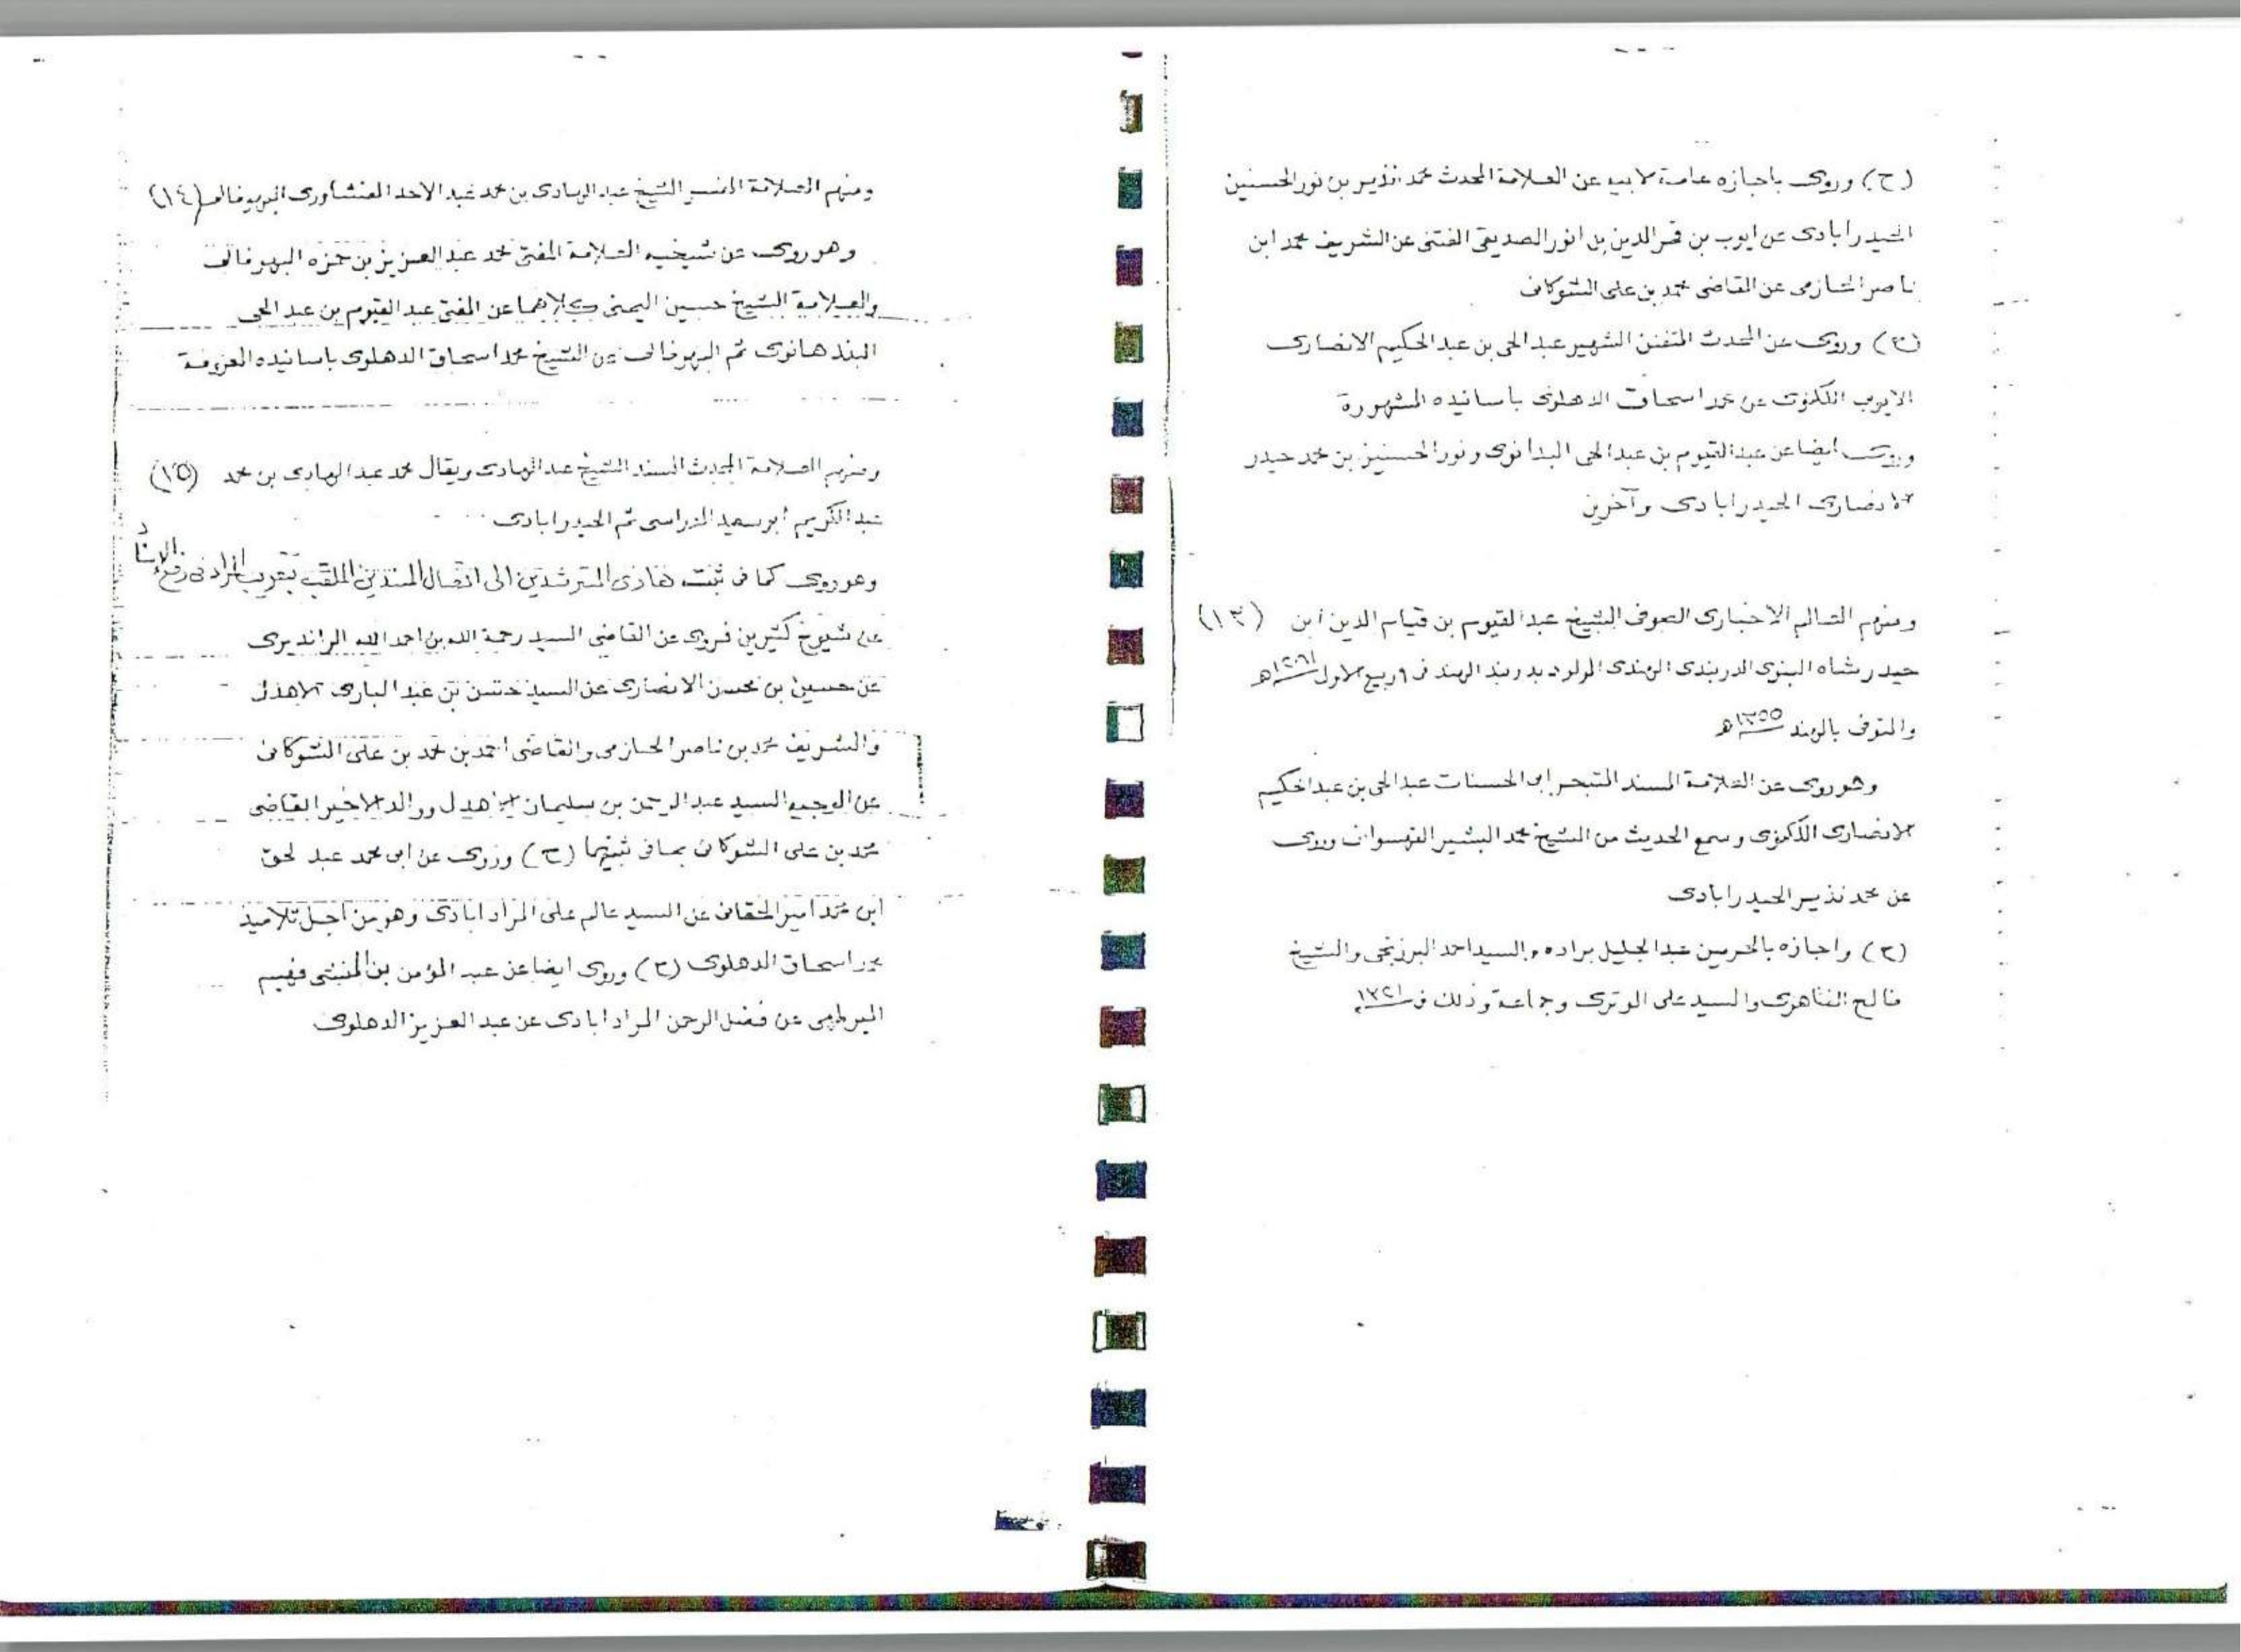 (ح) وروى باجازه عامة لابيه عن العلامة المحدث محمد نذير بن نور الحسنين
الحيدرابادى عن ايوب بن قمر الدين بن انور الصديقى الفتنى عن الشريف محمد ابن
ناصر الحازمى عن القاضى محمد بن على الشوكانى
(ح) وروى عن المحدث المتفنن الشهير عبد الحى بن عبد الحكيم الانصارى
الايوبى اللكنوى عن محمد اسحاق الدهلوى باسانيده المشهورة
وروى ايضا عن عبد القيوم بن عبد الحى البدانوى ونور الحسنين بن محمد حيدر
الانصارى الحيدرابادى وآخرين
ومنهم العالم الاخبارى الصوفى الشيخ عبد القيوم بن قيام الدين ابن (١٣)
حيدر شاه البنوى الدربندى الهندى المولود بدربند الهند فى ٦ ربيع الاول ١٢٦١ه
والمتوفى بالهند ١٣٥٥ه
وهو روى عن العلامة المسند المتبحر ابى الحسنات عبد الحى بن عبد الحكيم
الانصارى اللكنوى وسمع الحديث من الشيخ محمد البشير السهسوانى وروى
عن محمد نذير الحيدرابادى
(ح) واجازه بالحرمين عبد الجليل براده والسيد احمد البرزنجى والشيخ
فالح الظاهرى والسيد على الوترى وجماعة وذلك فى ١٣٢١
ومنهم العلامة الشيخ عبد الهادى بن محمد عبد الاحد البهوفالى (١٤)
وهو روى عن شيخيه العلامة المفتى محمد عبد العزيز بن حمزه البهوفالى
والعلامة الشيخ حسين اليمنى كلاهما عن المفتى عبد القيوم بن عبد الحى
البندهانوى ثم البهوفالى عن الشيخ محمد اسحاق الدهلوى باسانيده المعروفة
ومنهم العلامة المحدث المسند الشيخ عبد الهادى ويقال محمد عبد الهادى بن محمد (١٥)
عبد الكريم أبو سعيد المدراسى ثم الحيدرابادى
وهو روى كما فى ثبته هادى المسترشدين الى اتصال المسندين الملقب بتقريب المراد فى رفع الإسناد
عن شيوخ كثيرين فروى عن القاضى السيد رحمة الله بن احمد الله الرانديرى
عن حسين بن محسن الانصارى عن السيد حسن بن عبد البارى الاهدل
والشريف محمد بن ناصر الحازمى والقاضى احمد بن محمد بن على الشوكانى
عن الوجيه السيد عبد الرحمن بن سليمان الاهدل ووالد الاخير القاضى
محمد بن على الشوكانى بما فى ثبتيهما (ح) وروى عن ابى محمد عبد الحق
ابن محمد امير الحقانى عن السيد عالم على المراد ابادى وهو من اجل تلاميذ
محمد اسحاق الدهلوى (ح) وروى ايضا عن عبد المؤمن بن المنشى فهيم
عن فضل الرحمن المراد ابادى عن عبد العزيز الدهلوى